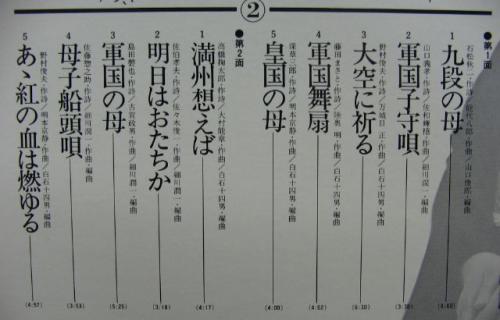 ②
●第1面
1 九段の母
石松秋二・作詩／能代八郎・作曲／山口俊郎・編曲
(4:60)
2 軍国子守唄
山口義孝・作詩／佐和輝禧・作曲／細川潤一・編曲
(3:38)
3 大空に祈る
野村俊夫・作詩／万城目 正・作曲／白石十四男・編曲
4 軍国舞扇
藤田まさと・作詩／陸奥 明・作曲／白石十四男・編曲
(4:52)
5 皇国の母
深草三郎・作詩／明本京静・作曲／白石十四男・編曲
(4:00)
●第2面
1 満州想えば
高橋掬太郎・作詩／大村能章・作曲／白石十四男・編曲
(4:17)
2 明日はおたちか
佐伯孝夫・作詩／佐々木俊一・作曲／細川潤一・編曲
(3:16)
3 軍国の母
島田磬也・作詩／古賀政男・作曲／細川潤一・編曲
(5:25)
4 母子船頭唄
佐藤惣之助・作詩／細川潤一・作曲・編曲
(3:53)
5 あゝ紅の血は燃ゆる
野村俊夫・作詩／明本京静・作曲／白石十四男・編曲
(4:57)